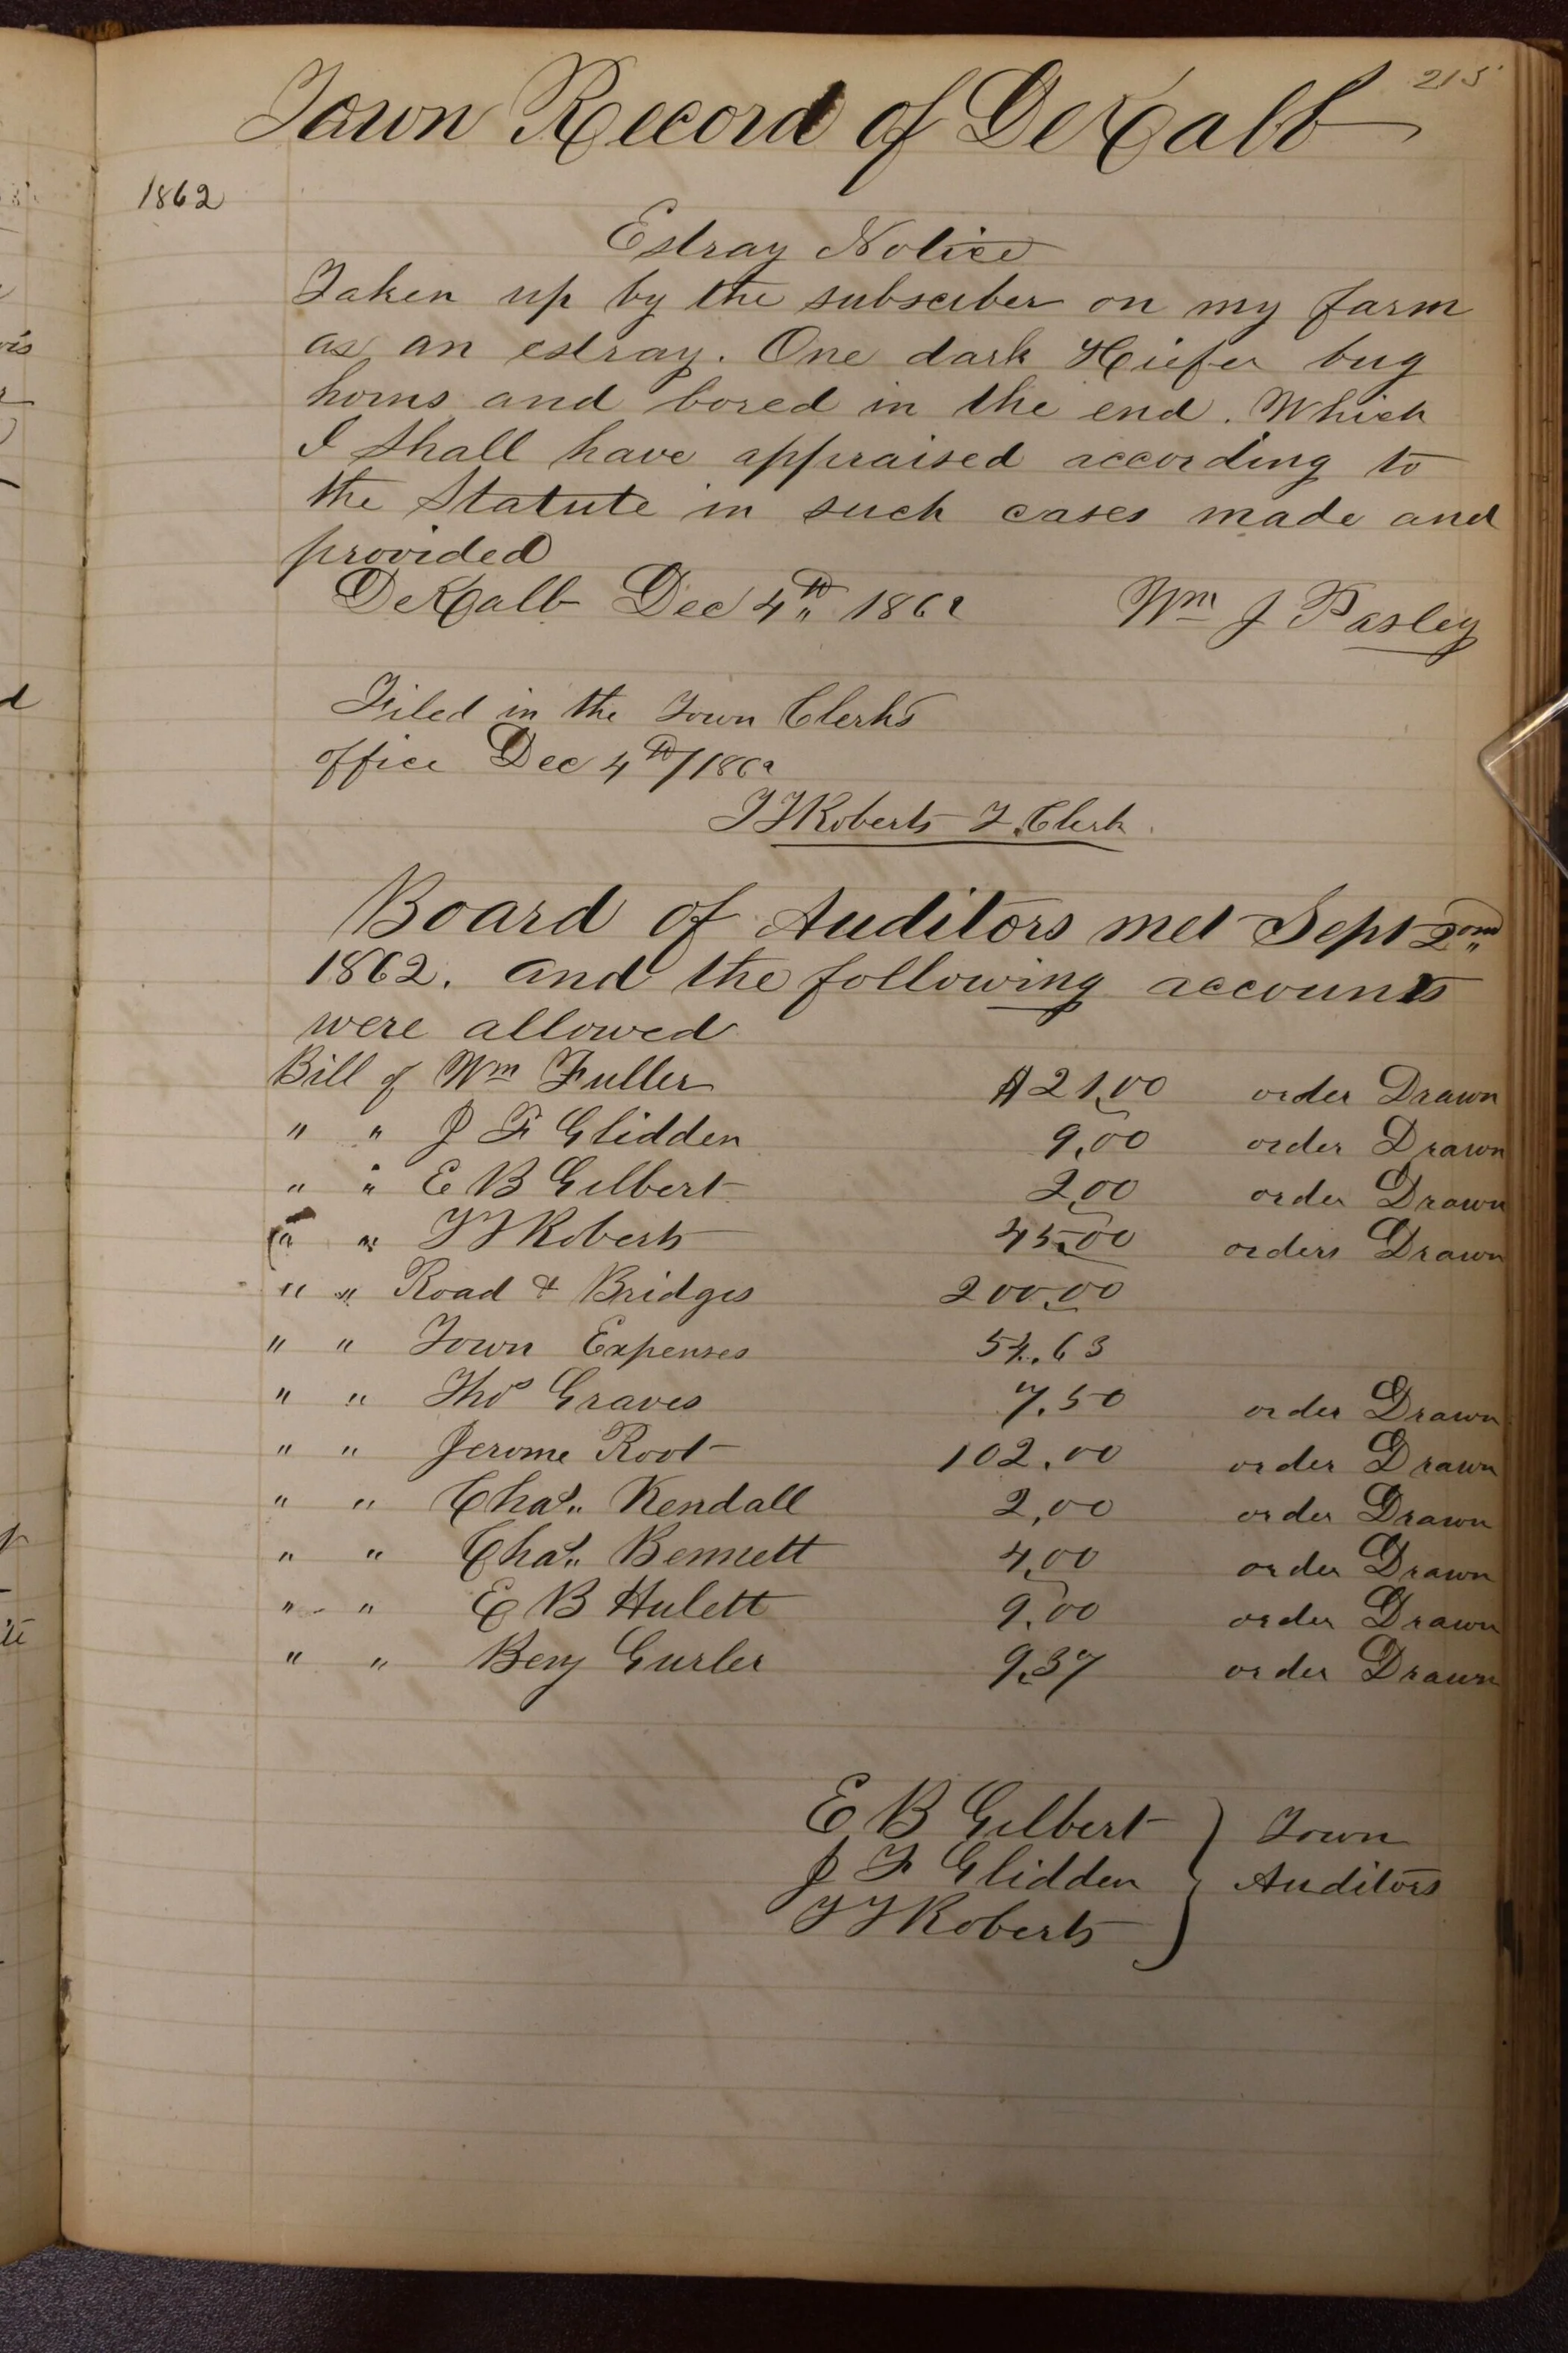 215
Town Record of DeKalb
1862
Estray Notice
Taken up by the subsciber on my farm
as an estray. One dark Hiefer bug
horns and bored in the end. Which
I shall have appraised according to
the Statute in such cases made and
provided
DeKalb Dec 4th 1862 Wm J Pasley
Filed in the Town Clerks
office Dec 4th/1862
T F Roberts T. Clerk.
Board of Auditors met Sept 2ond
1862. and the following accounts
were allowed
Bill of Wm Fuller $21,00 order Drawn
" " J F Glidden 9,00 order Drawn
" " E B Gilbert 2,00 order Drawn
" " T F Roberts 45,00 orders Drawn
" " Road & Bridges 200,00
" " Town Expenses 54.63
" " Thos Graves 7.50 order Drawn
" " Jerome Root 102.00 order Drawn
" " Chas. Kendall 2,00 order Drawn
" " Chas. Bennett 4,00 order Drawn
" " E B Hulett 9,00 order Drawn
" " Benj Gurler 9,37 order Drawn
E B Gilbert } Town
J F Glidden } Auditors
T F Roberts }